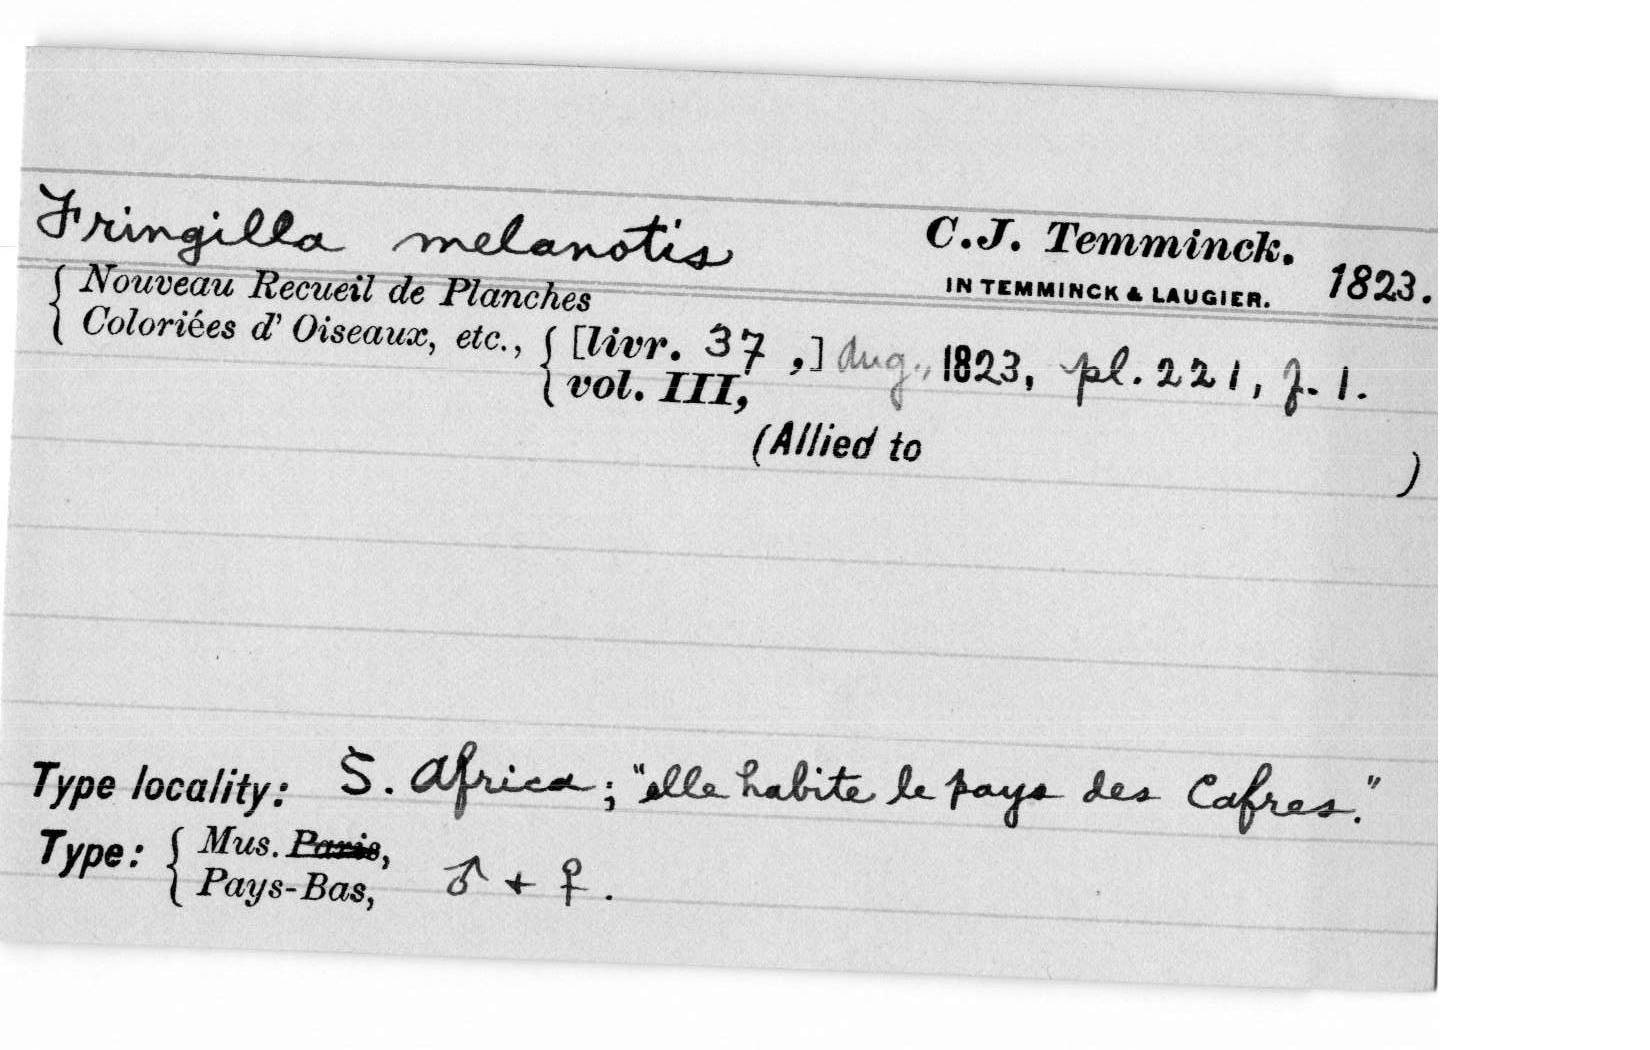 Fringilla melanotis C.J. Temminck.
IN TEMMINCK & LAUGIER. 1823.
{ Nouveau Recueil de Planches
Coloriées d' Oiseaux, etc., { [livr. 37 ,] Aug., 1823, pl. 221, f. 1.
vol. III,
(Allied to )
Type locality: S. Africa; "elle habite le pays des Cafres."
Type: { Mus. Paris,
Pays-Bas, ♂ + ♀.